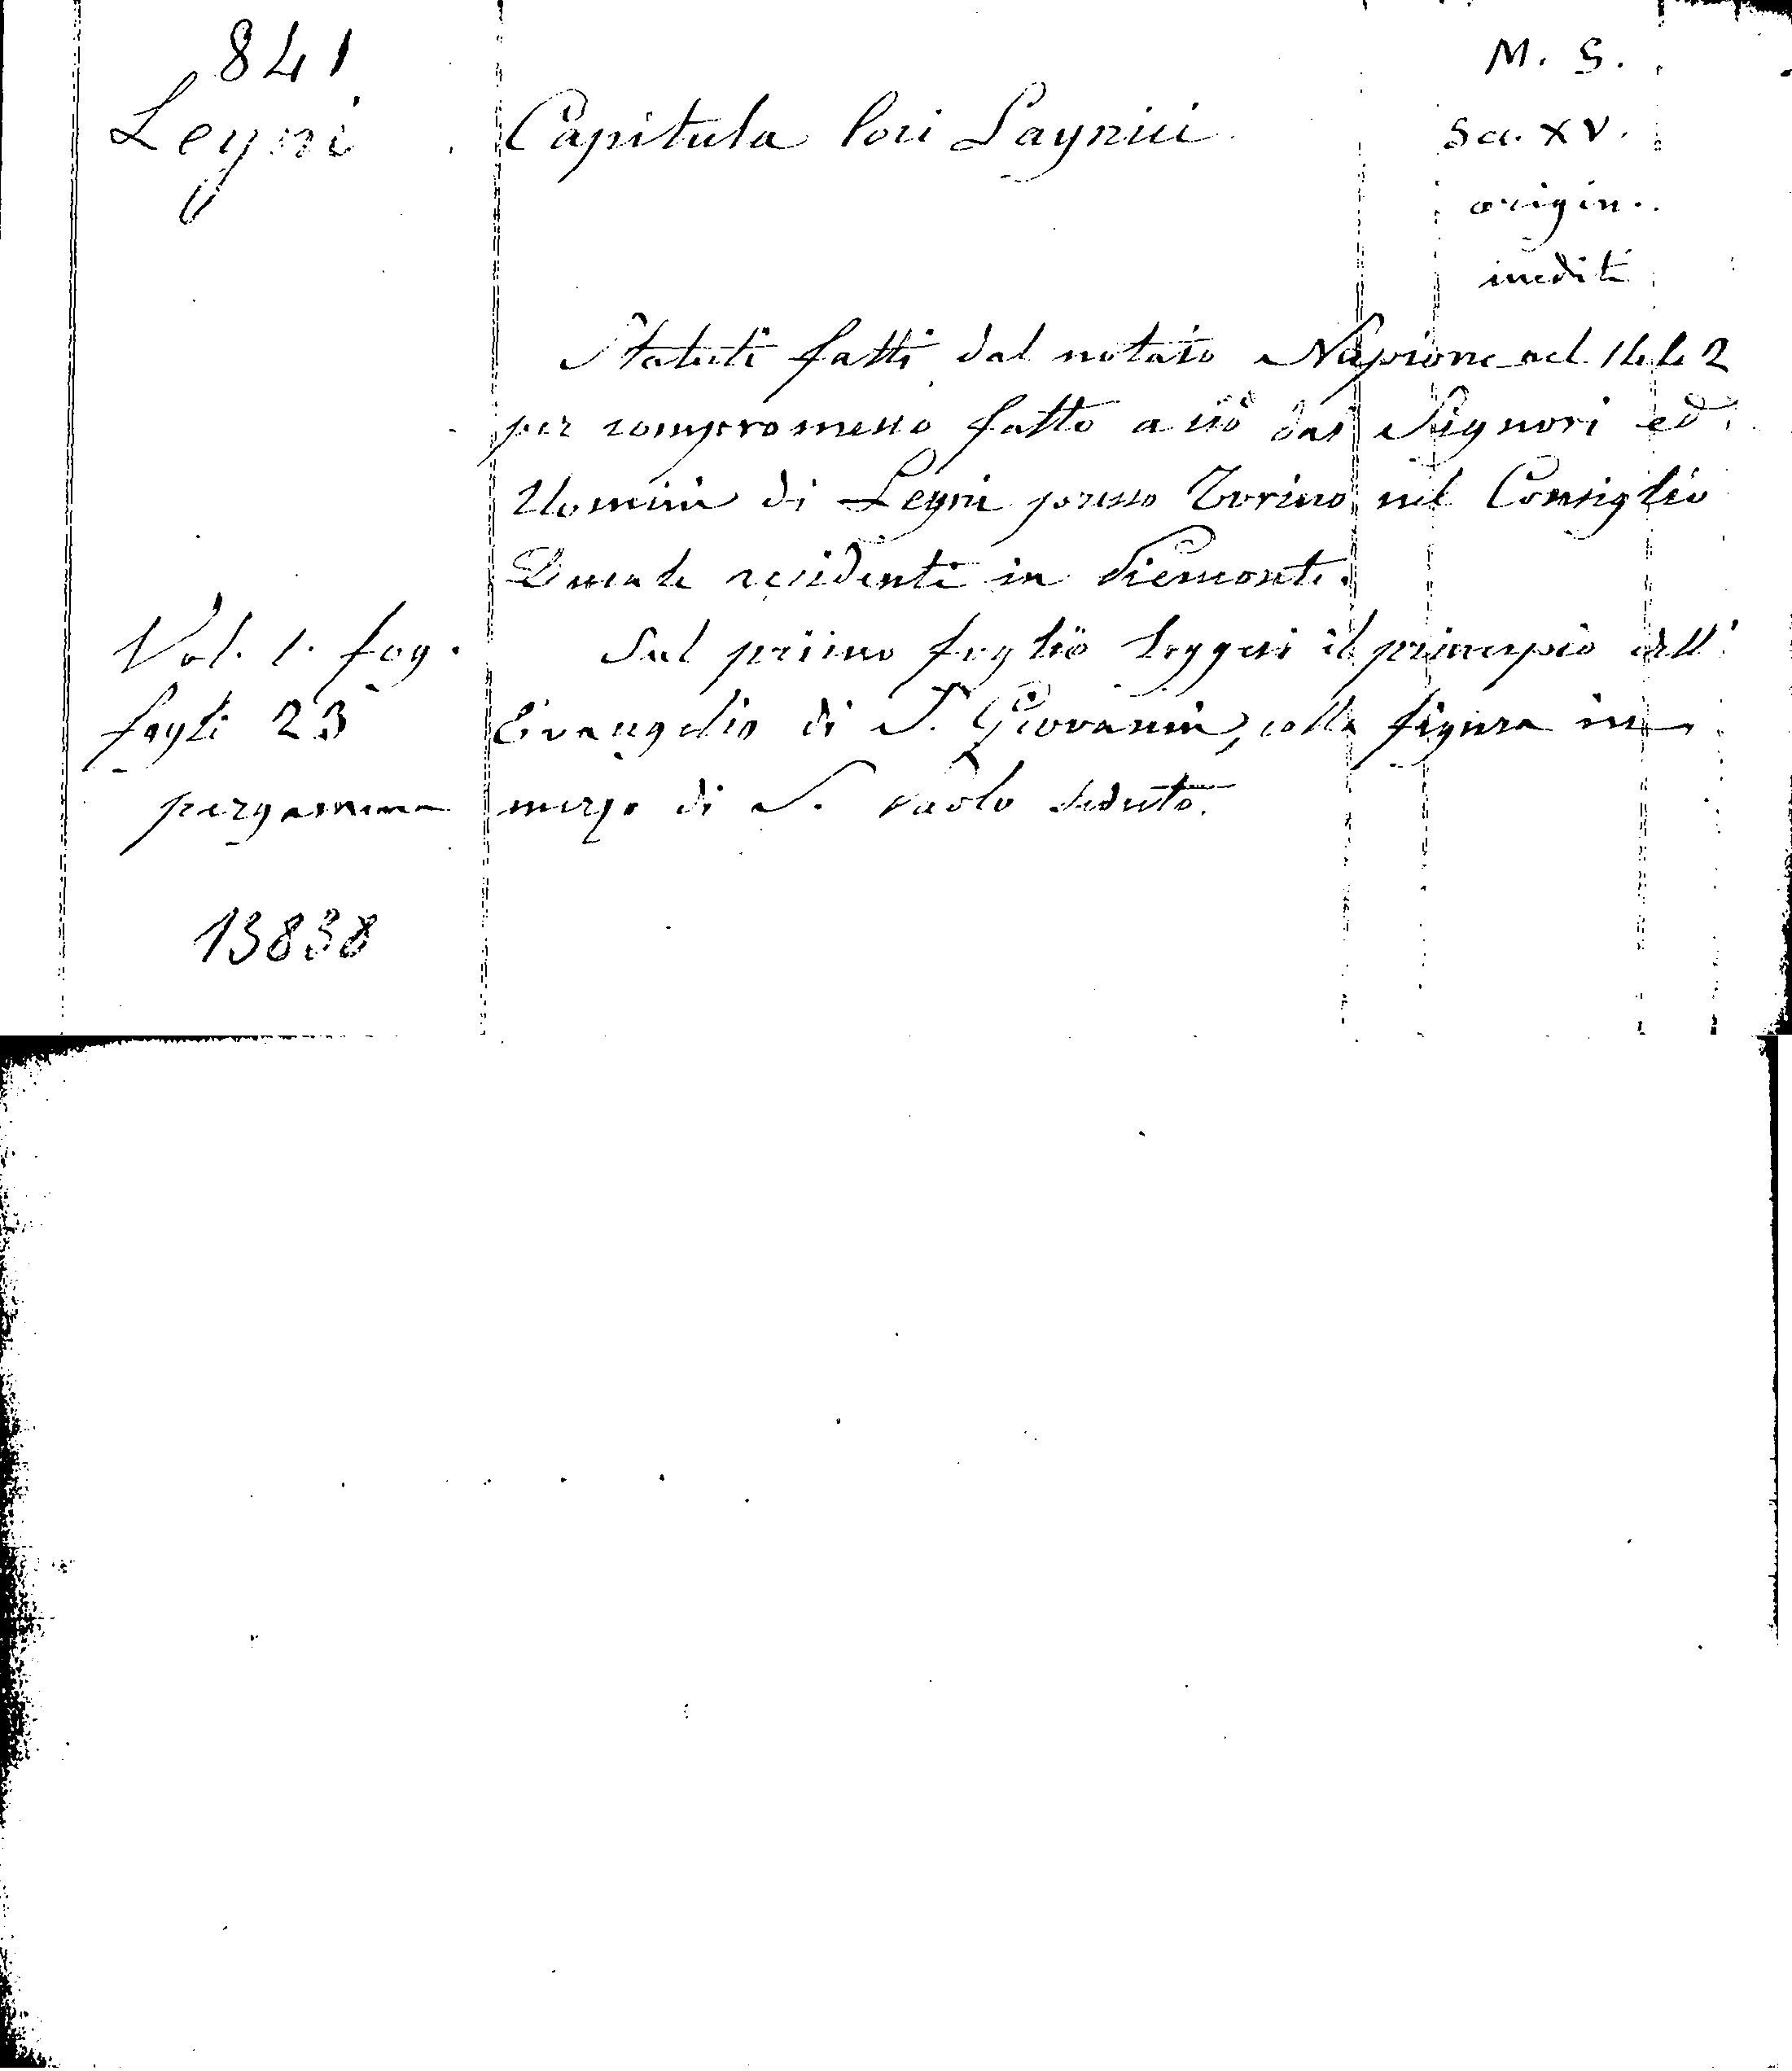 841
Leyni
Capitula loci Laynici
M. S.
Sec. XV.
origin.
inediti
Statuti fatti dal notaio Napione nel 1442
per compromesso fatto a ciò dai Signori ed
Uomini di Leyni presso Torino nel Consiglio
Ducale residente in Piemonte.
Vol. 1. fog.
fogli 23
pergamena
Sul primo foglio leggesi il principio dell'
Evangelio di S. Giovanni, colla figura in
mezzo di S. Paolo seduto.
13838